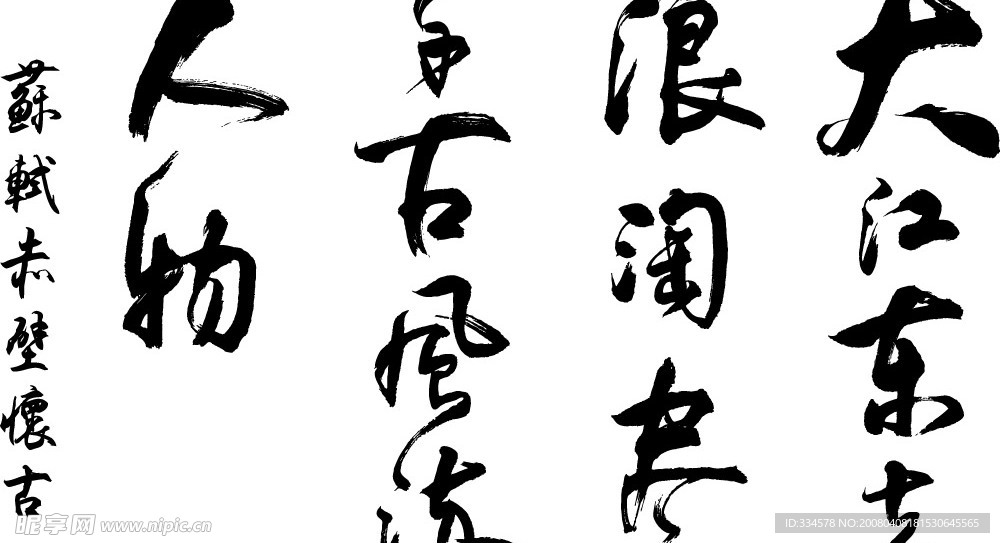 大江东去
浪淘尽
千古风流
人物
蘇軾赤壁懷古
昵享网 www.nipic.cn
ID:334578 NO:20080408181530645565